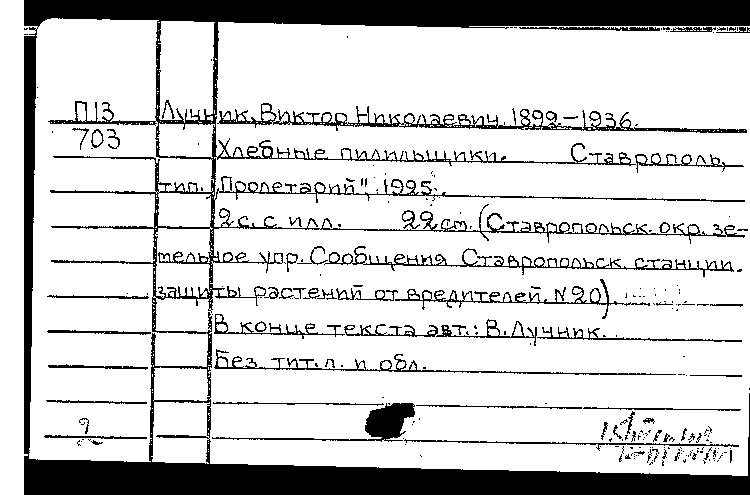 П13 Лучник, Виктор Николаевич. 1892-1936.
703 Хлебные пилильщики. Ставрополь,
тип. „Пролетарий", 1925.
2 с. с илл. 22 см. (Ставропольск. окр. зе-
тельное упр. Сообщения Ставропольск. станции
защиты растений от вредителей. № 20).
В конце текста авт.: В. Лучник.
Без тит. л. и обл.
2